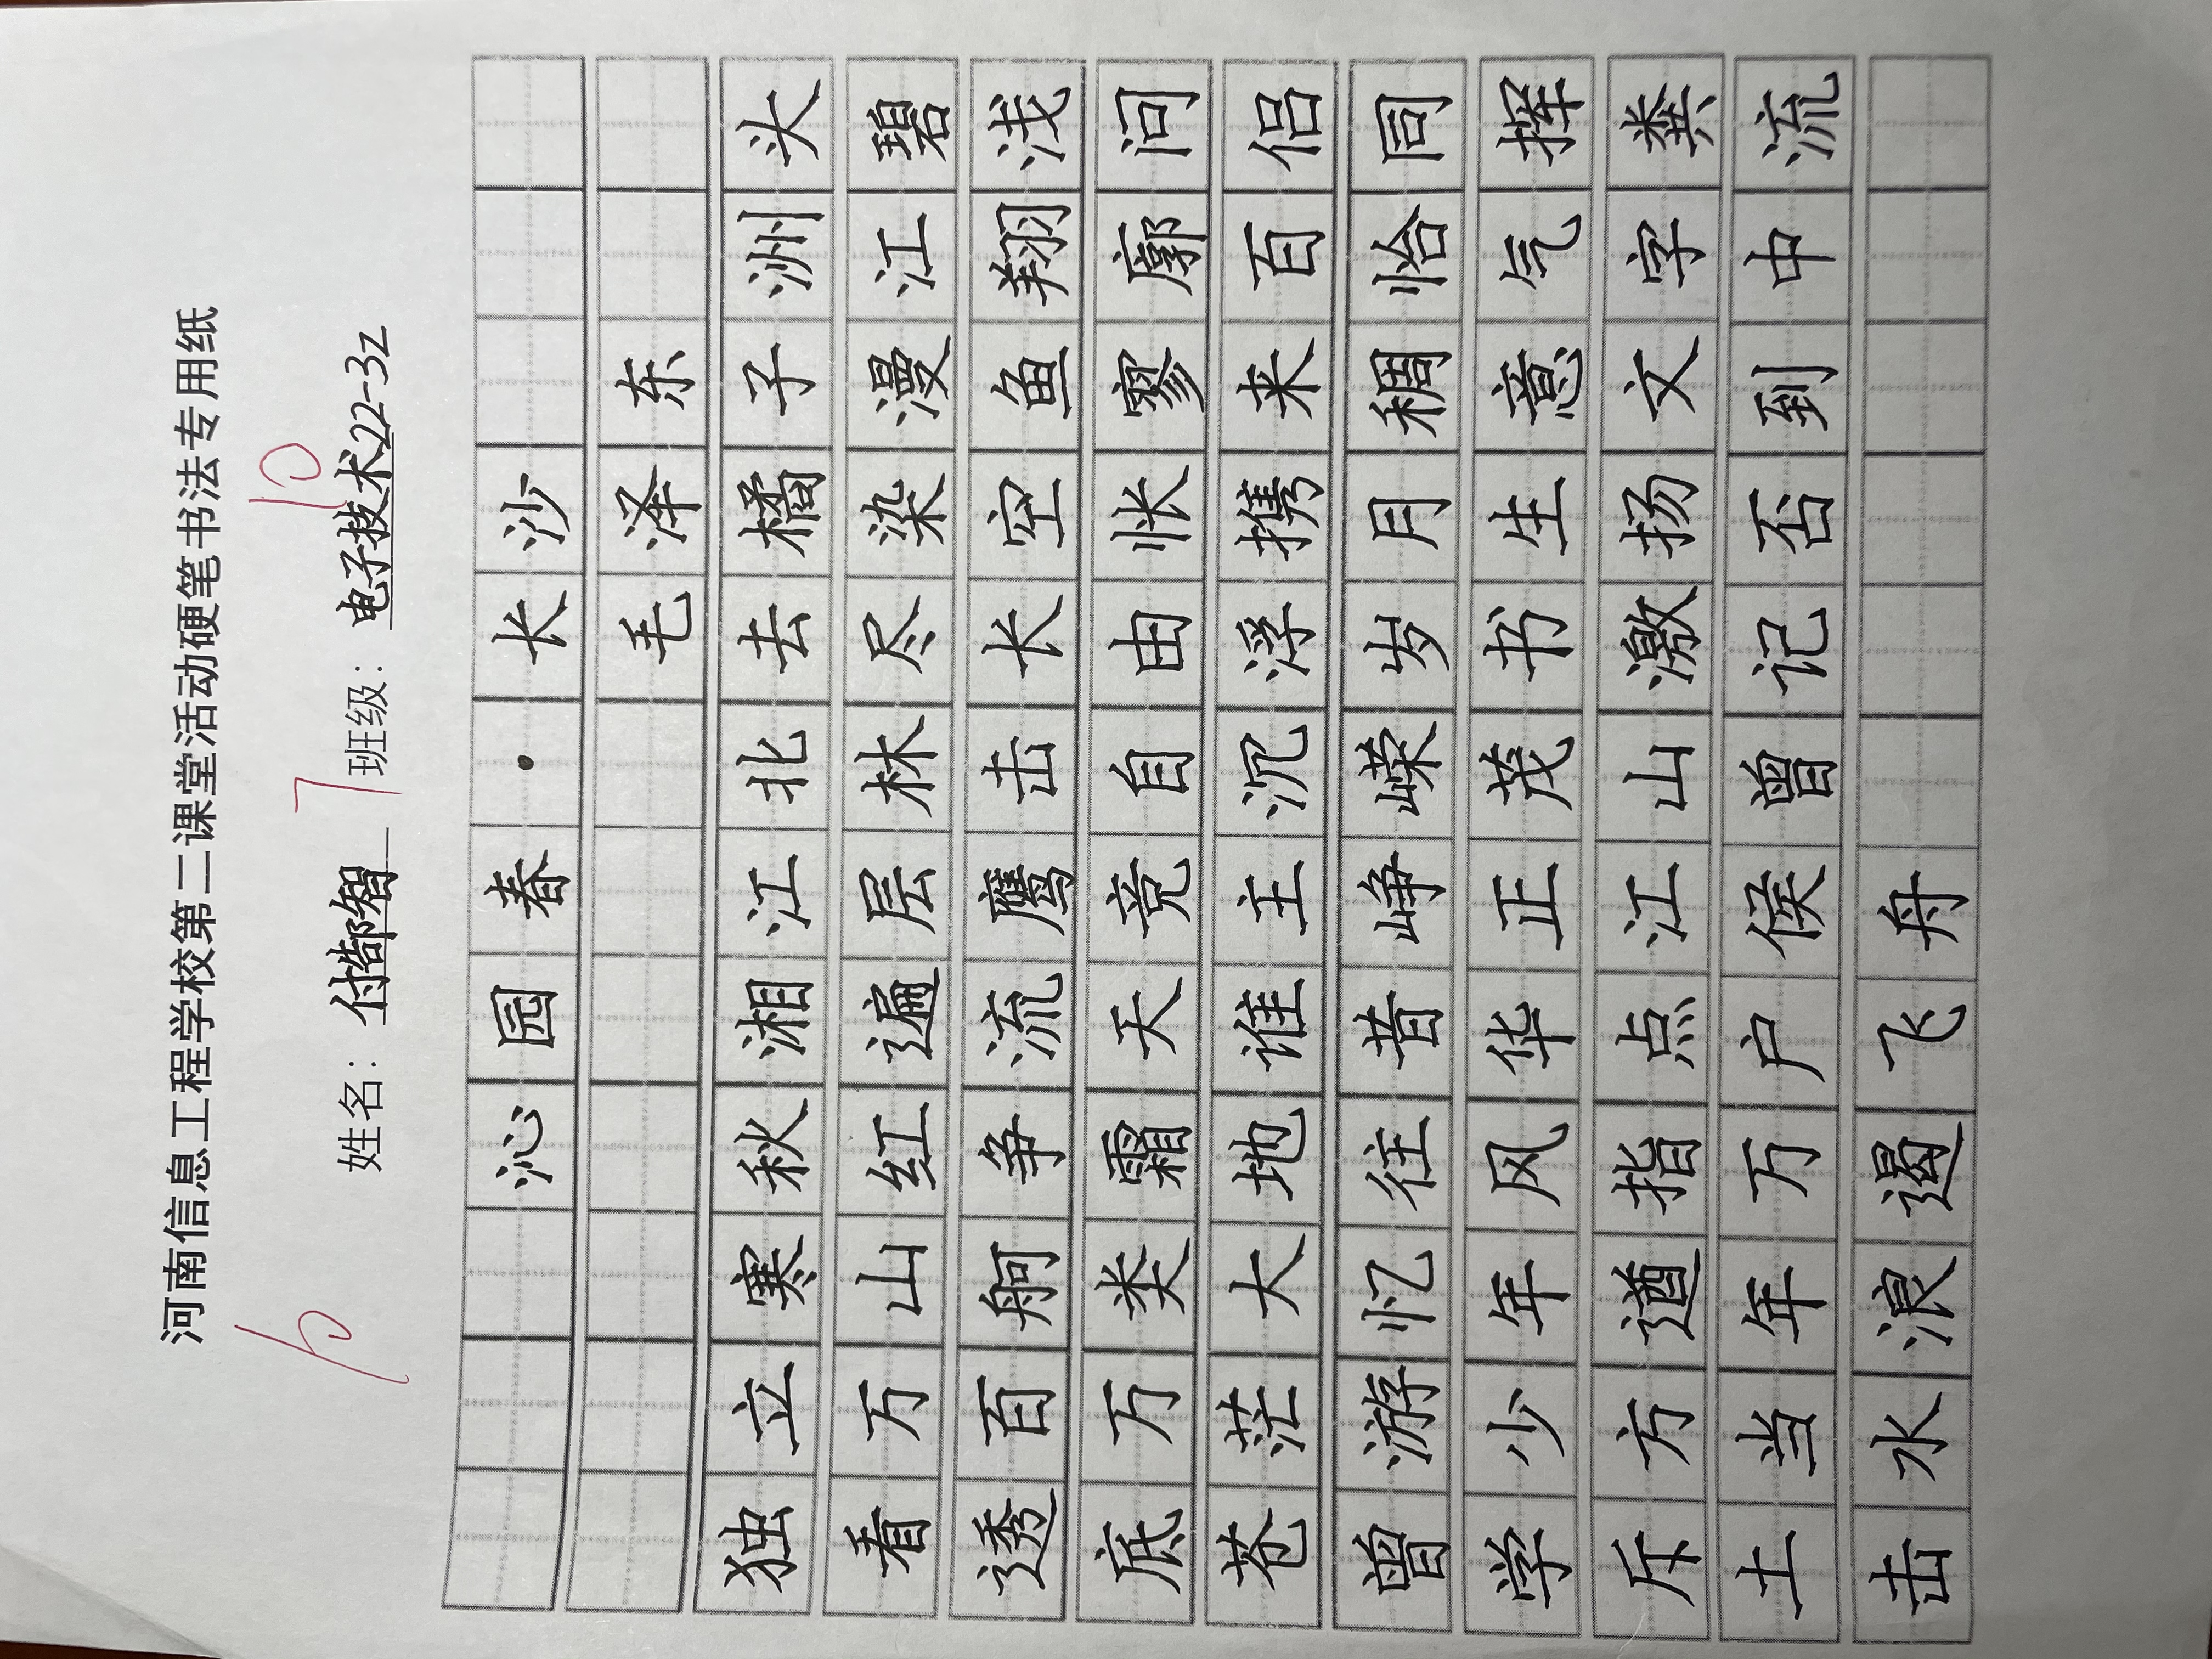 河南信息工程学校第二课堂活动硬笔书法专用纸
姓名： 班级：电子技术22-3z
沁园春·长沙
毛泽东
独立寒秋湘江北去橘子洲头
看万山红遍层林尽染漫江碧
透百舸争流鹰击长空鱼翔浅
底万类霜天竞自由怅寥廓问
苍茫大地谁主沉浮携来百侣
曾游忆往昔峥嵘岁月稠恰同
学少年风华正茂书生意气挥
斥方遒指点江山激扬文字粪
土当年万户侯曾记否到中流
击水浪遏飞舟